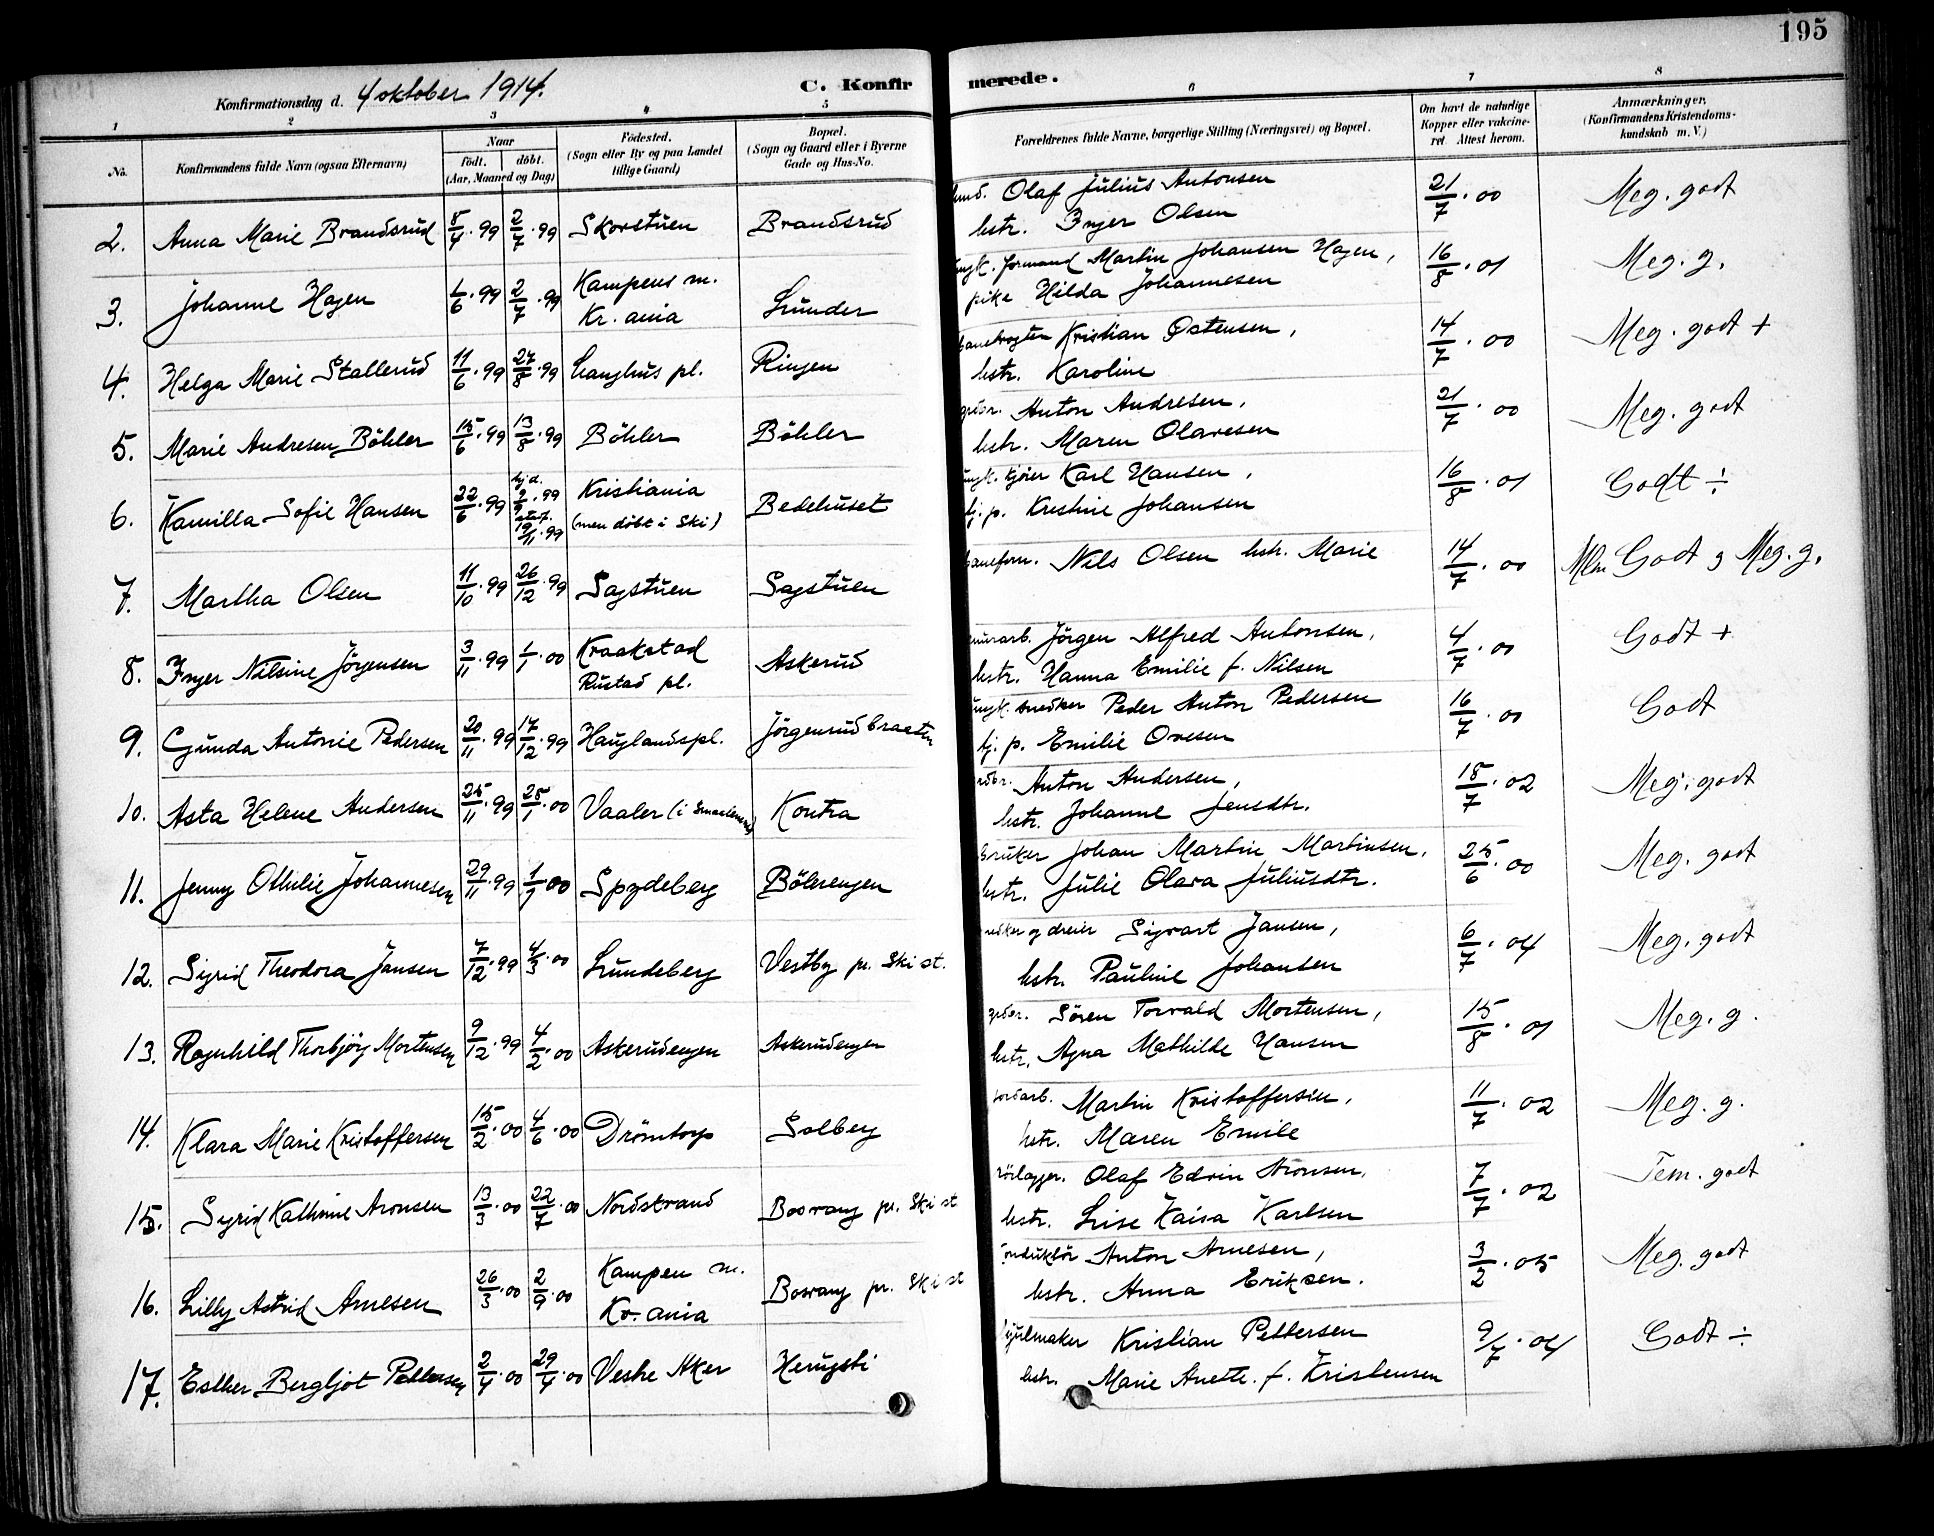 195
Konfirmationsdag d. 4 oktober 1914.
C. Konfirmerede.
1 2 3 4 5 6 7 8
No.
Konfirmandens fulde Navn (ogsaa Efternavn)
Naar
født. døbt.
(Aar, Maaned og Dag)
Fødested.
(Sogn eller By og paa Landet
tillige Gaard)
Bopæl.
(Sogn og Gaard eller i Byerne
Gade og Hus-No.
Forældrenes fulde Navne, borgerlige Stilling (Næringsvei) og Bopæl.
Om havt de naturlige
Kopper eller vakcine-
ret Attest herom.
Anmærkninger.
(Konfirmandens Kristendoms-
kundskab m. V.)
2. Anna Marie Brandsrud 8/4.99 2/7.99 Skorstuen Brandsrud
Olaf Julius Antonsen
hstr. Inger Olsen
21/7.00 Meg. godt
3. Johanne Hagen 1/6.99 2/7.99 Kampens m.
Kr.ania Lunder
ungk. formand Martin Johansen Hagen,
pike Hilda Johannesen
16/8.01 Meg. g.
4. Helga Marie Stallerud 11/6.99 27/8.99 Langhus pl. Ringen
banevogter Kristian Østensen,
hstr. Karoline
14/7.00 Meg. godt +
5. Marie Andresen Böhler 15/6.99 13/8.99 Böhler Böhler
grdbr. Anton Andresen,
hstr. Maren Olavesen
21/7.00 Meg. godt
6. Kamilla Sofie Hansen 22/6.99 hjd.
2/9.99
stadf.
19/11.99 Kristiania
(men döbt i Ski) Bedehuset
ungk. kjører Karl Hansen,
hj. p. Kristine Johansen
16/8.01 Godt ÷
7. Martha Olsen 11/10.99 26/12.99 Sagstuen Sagstuen
baneform. Nils Olsen hstr. Marie
14/7.00 Mlm Godt og Meg. g.
8. Inger Nilsine Jörgensen 3/11.99 1/1.00 Kraakstad
Rustad pl. Askerud
murarb. Jörgen Alfred Antonsen,
hstr. Hanna Emilie f. Nilsen
4/7.00 Godt +
9. Gunda Antonie Pedersen 20/11.99 17/12.99 Hauglandspl. Jörgensrudbraaten
ungk. snedker Peder Anton Pedersen
hj. p. Emilie Ovesen
16/7.00 Godt
10. Asta Helene Andersen 25/11.99 28/1.00 Vaaler (i Smaalenene) Kontra
grdbr. Anton Andersen,
hstr. Johanne Jensdtr.
18/7.02 Meg. godt
11. Jenny Othilie Johannesen 29/11.99 1/1.00 Spydeberg Bölerengen
bruker Johan Martin Martinsen,
hstr. Julie Olava Juliusdtr.
25/6.00 Meg. godt
12. Sigrid Theodora Jansen 7/12.99 4/3.00 Lundeberg Vestby pr. Ski st.
snedker og dreier Sigvart Jansen,
hstr. Pauline Johansen
6/7.04 Meg. godt
13. Ragnhild Thorbjörg Mortensen 9/12.99 4/2.00 Askerudengen Askerudengen
grdbr. Sören Torvald Mortensen,
hstr. Agna Mathilde Hansen
15/8.01 Meg. g.
14. Klara Marie Kristoffersen 15/2.00 4/6.00 Drömtorp Solberg
jordarb. Martin Kristoffersen,
hstr. Maren Emile
11/7.02 Meg. g.
15. Sigrid Kathinie Aronsen 13/3.00 22/7.00 Nordstrand Bosvang pr. Ski st
rörlægger. Olaf Edvin Aronsen,
hstr. Lise Kaisa Karlsen
7/7.02 Tem. godt
16. Lilly Astrid Arnesen 26/3.00 2/9.00 Kampen m.
Kr.ania Bosvang pr. Ski st
Konduktör Anton Arnesen,
hstr. Anna Eriksen.
3/2.05 Meg. godt
17. Esther Bergljot Pettersen 2/4.00 29/4.00 Vestre Aker Herugsti
hjulmaker Kristian Pettersen
hstr. Marie Anette. f. Kristensen
9/7.04 Godt ÷